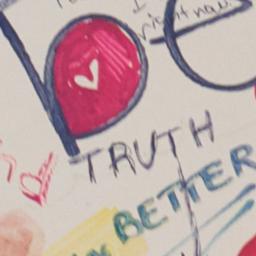 I
right now
be
TRUTH
BETTER